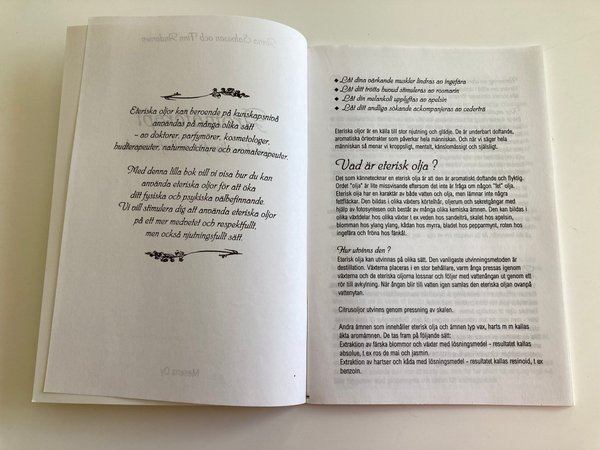 Eteriska oljor kan beroende på kunskapsnivå
användas på många olika sätt
- av doktorer, parfymörer, kosmetologer,
hudterapeuter, naturmedicinare och aromaterapeuter.
Med denna lilla bok vill vi visa hur du kan
använda eteriska oljor för att öka
ditt fysiska och psykiska välbefinnande.
Vi vill stimulera dig att använda eteriska oljor
på ett mer medvetet och respektfullt,
men också njutningsfullt sätt.
◆ Låt dina värkande muskler lindras av ingefära
◆ Låt ditt trötta huvud stimuleras av rosmarin
◆ Låt din melankoli upplyftas av apelsin
◆ Låt ditt andliga sökande ackompanjeras av cederträ
Eteriska oljor är en källa till stor njutning och glädje. De är underbart doftande,
aromatiska örtextrakter som påverkar hela människan. Och när vi säger hela
människan så menar vi kroppsligt, mentalt, känslomässigt och själsligt.
Vad är eterisk olja ?
Det som kännetecknar en eterisk olja är att den är aromatiskt doftande och flyktig.
Ordet "olja" är lite missvisande eftersom det inte är fråga om någon "fet" olja.
Eterisk olja har en karaktär av både vatten och olja, men lämnar inte några
fettfläckar. Den bildas i olika växters körtelhår, oljerum och sekretgångar med
hjälp av fotosyntesen och består av många olika kemiska ämnen. Den kan bildas i
olika växtdelar hos olika växter t ex veden hos sandelträ, skalet hos apelsin,
blomman hos ylang ylang, kådan hos myrra, bladet hos pepparmynt, roten hos
ingefära och fröna hos fänkål.
Hur utvinns den ?
Eterisk olja kan utvinnas på olika sätt. Den vanligaste utvinningsmetoden är
destillation. Växterna placeras i en stor behållare, varm ånga pressas igenom
växterna och de eteriska oljorna lossnar och följer med vattenångan ut genom ett
rör till avkylning. När ångan blir till vatten igen samlas den eteriska oljan ovanpå
vattenytan.
Citrusoljor utvinns genom pressning av skalen.
Andra ämnen som innehåller eterisk olja och ämnen typ vax, harts m m kallas
äkta aromämnen. De tas fram på följande sätt:
Extraktion av färska blommor och växter med lösningsmedel - resultatet kallas
absolue, t ex ros de mai och jasmin.
Extraktion av hartser och kåda med lösningsmedel - resultatet kallas resinoid, t ex
benzoin.